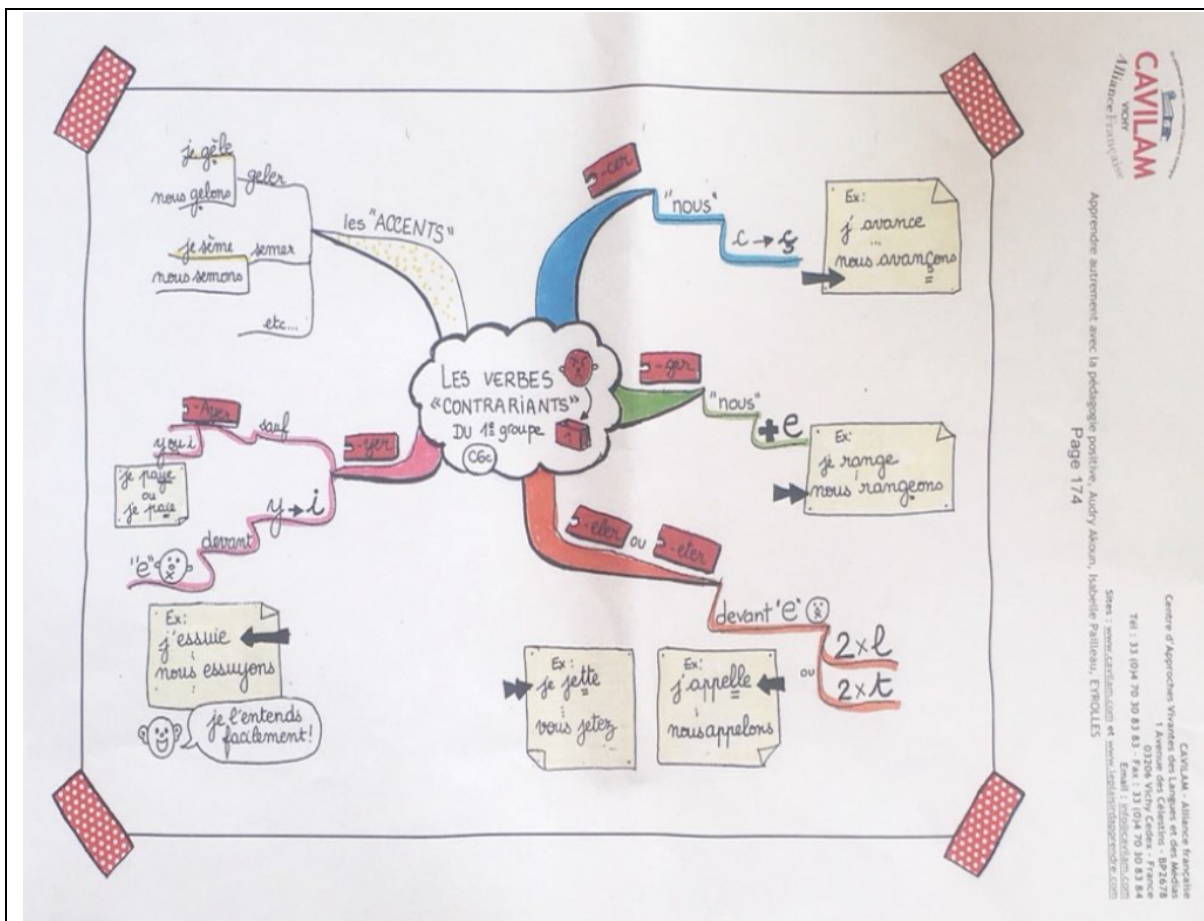 LES VERBES
«CONTRARIANTS»
DU 1er groupe
CGC
les "ACCENTS"
geler
je gèle
nous gelons
semer
je sème
nous semons
etc...
-cer
"nous"
c → ç
Ex:
j'avance
...
nous avançons
-ger
"nous"
+e
Ex:
je range
nous rangeons
-eler ou -eter
devant "e"
2xl
ou
2xt
Ex:
j'appelle
nous appelons
Ex:
je jette
vous jetez
-yer
sauf
-Ayer
y ou i
je paye
ou
je paie
y → i
devant
"e"
Ex:
j'essuie
nous essuyons
je l'entends
facilement!
CAVILAM
VICHY
Alliance Française
Apprendre autrement avec la pédagogie positive, Audry Akoun, Isabelle Pailleau, EYROLLES
Page 174
CAVILAM - Alliance française
Centre d'Approches Vivantes des Langues et des Médias
1 Avenue des Célestins - BP2678
03206 Vichy Cedex - France
Tél : 33 (0)4 70 30 83 83 - Fax : 33 (0)4 70 30 83 84
Email : info@cavilam.com
Sites : www.cavilam.com et www.leplaisirdapprendre.com